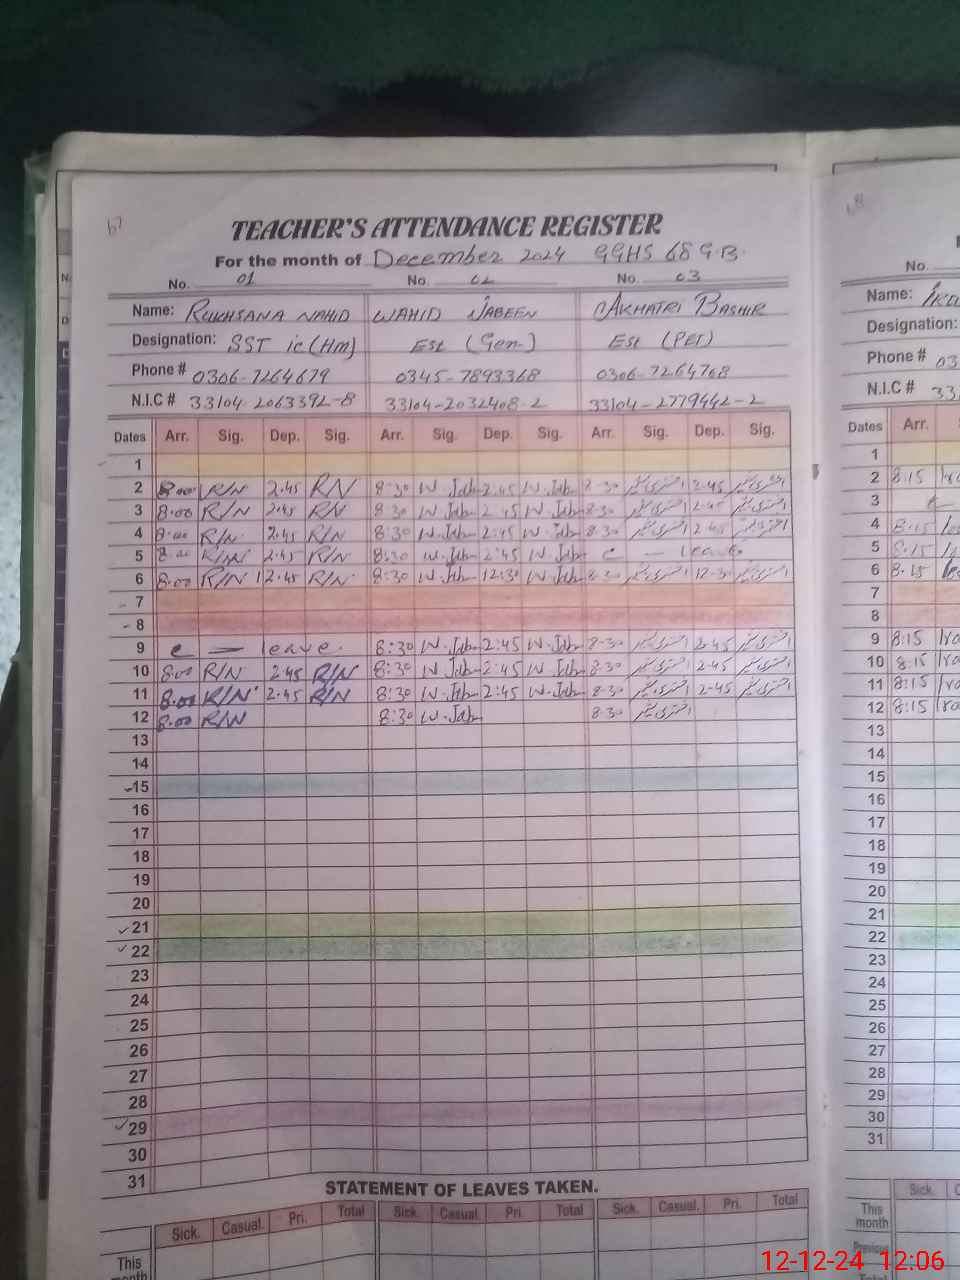 67
TEACHER'S ATTENDANCE REGISTER
For the month of December 2024 GGHS 68 G.B.
No. 01 No. 02 No. 03
Name: RUKHSANA NAHID WAHID JABEEN AKHATRI BASHIR
Designation: SST ic (Hm) Est (Gen-) Est (PET)
Phone # 0306-7264679 0345-7893368 0306-7264768
N.I.C # 33104-2063392-8 33104-2032408-2 33104-2779442-2
Dates Arr. Sig. Dep. Sig. Arr. Sig. Dep. Sig. Arr. Sig. Dep. Sig.
1
2 8:00 R/N 2.45 RN 8:30 W.Jab 2:45 W.Jab 8-30 2-45
3 8.00 R/N 2.45 R/N 8:30 W.Jab 2:45 W.Jab 8-30 2-45
4 8:00 R/N 2.45 R/N 8:30 W.Jab 2:45 W.Jab 8.30 2-45
5 8:00 R/N 2.45 R/N 8:30 W.Jab 2:45 W.Jab c — leave
6 8.00 R/N 12.45 R/N 8:30 W.Jab 12:30 W.Jab 8-30 12-30
7
8
9 c — leave 8:30 W.Jab 2:45 W.Jab 8-30 2-45
10 8:00 R/N 2.45 R/N 8:30 W.Jab 2:45 W.Jab 8-30 2-45
11 8.00 R/N 2-45 R/N 8:30 W.Jab 2:45 W.Jab 8-30 2-45
12 8.00 R/N 8:30 W.Jab 8-30
13
14
15
16
17
18
19
20
21
22
23
24
25
26
27
28
29
30
31
STATEMENT OF LEAVES TAKEN.
Sick. Casual. Pri. Total Sick. Casual. Pri. Total Sick. Casual. Pri. Total
This
month
68
No.
Name:
Designation:
Phone # 03
N.I.C # 33
Dates Arr.
1
2 8:15
3 c
4 8:15
5 8:15
6 8.15
7
8
9 8:15
10 8:15
11 8:15
12 8:15
13
14
15
16
17
18
19
20
21
22
23
24
25
26
27
28
29
30
31
Sick.
This
month
Previous
12-12-24 12:06